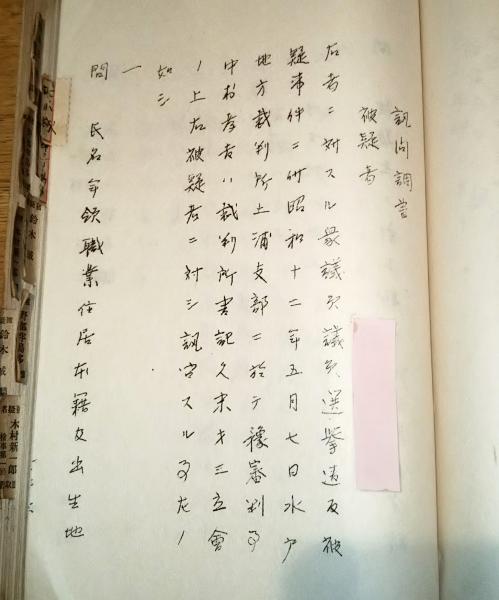 訊問調書
被疑者
右者ニ対スル衆議院議員選挙違反被
疑事件ニ付昭和十二年五月七日水戸
地方裁判所土浦支部ニ於テ豫審判事
中村孝吉ハ裁判所書記久末才三立會
ノ上右被疑者ニ対シ訊問スル事左ノ
如シ
一
問 氏名年領職業住居本籍及出生地
鈴木
鈴木
木村新一郎